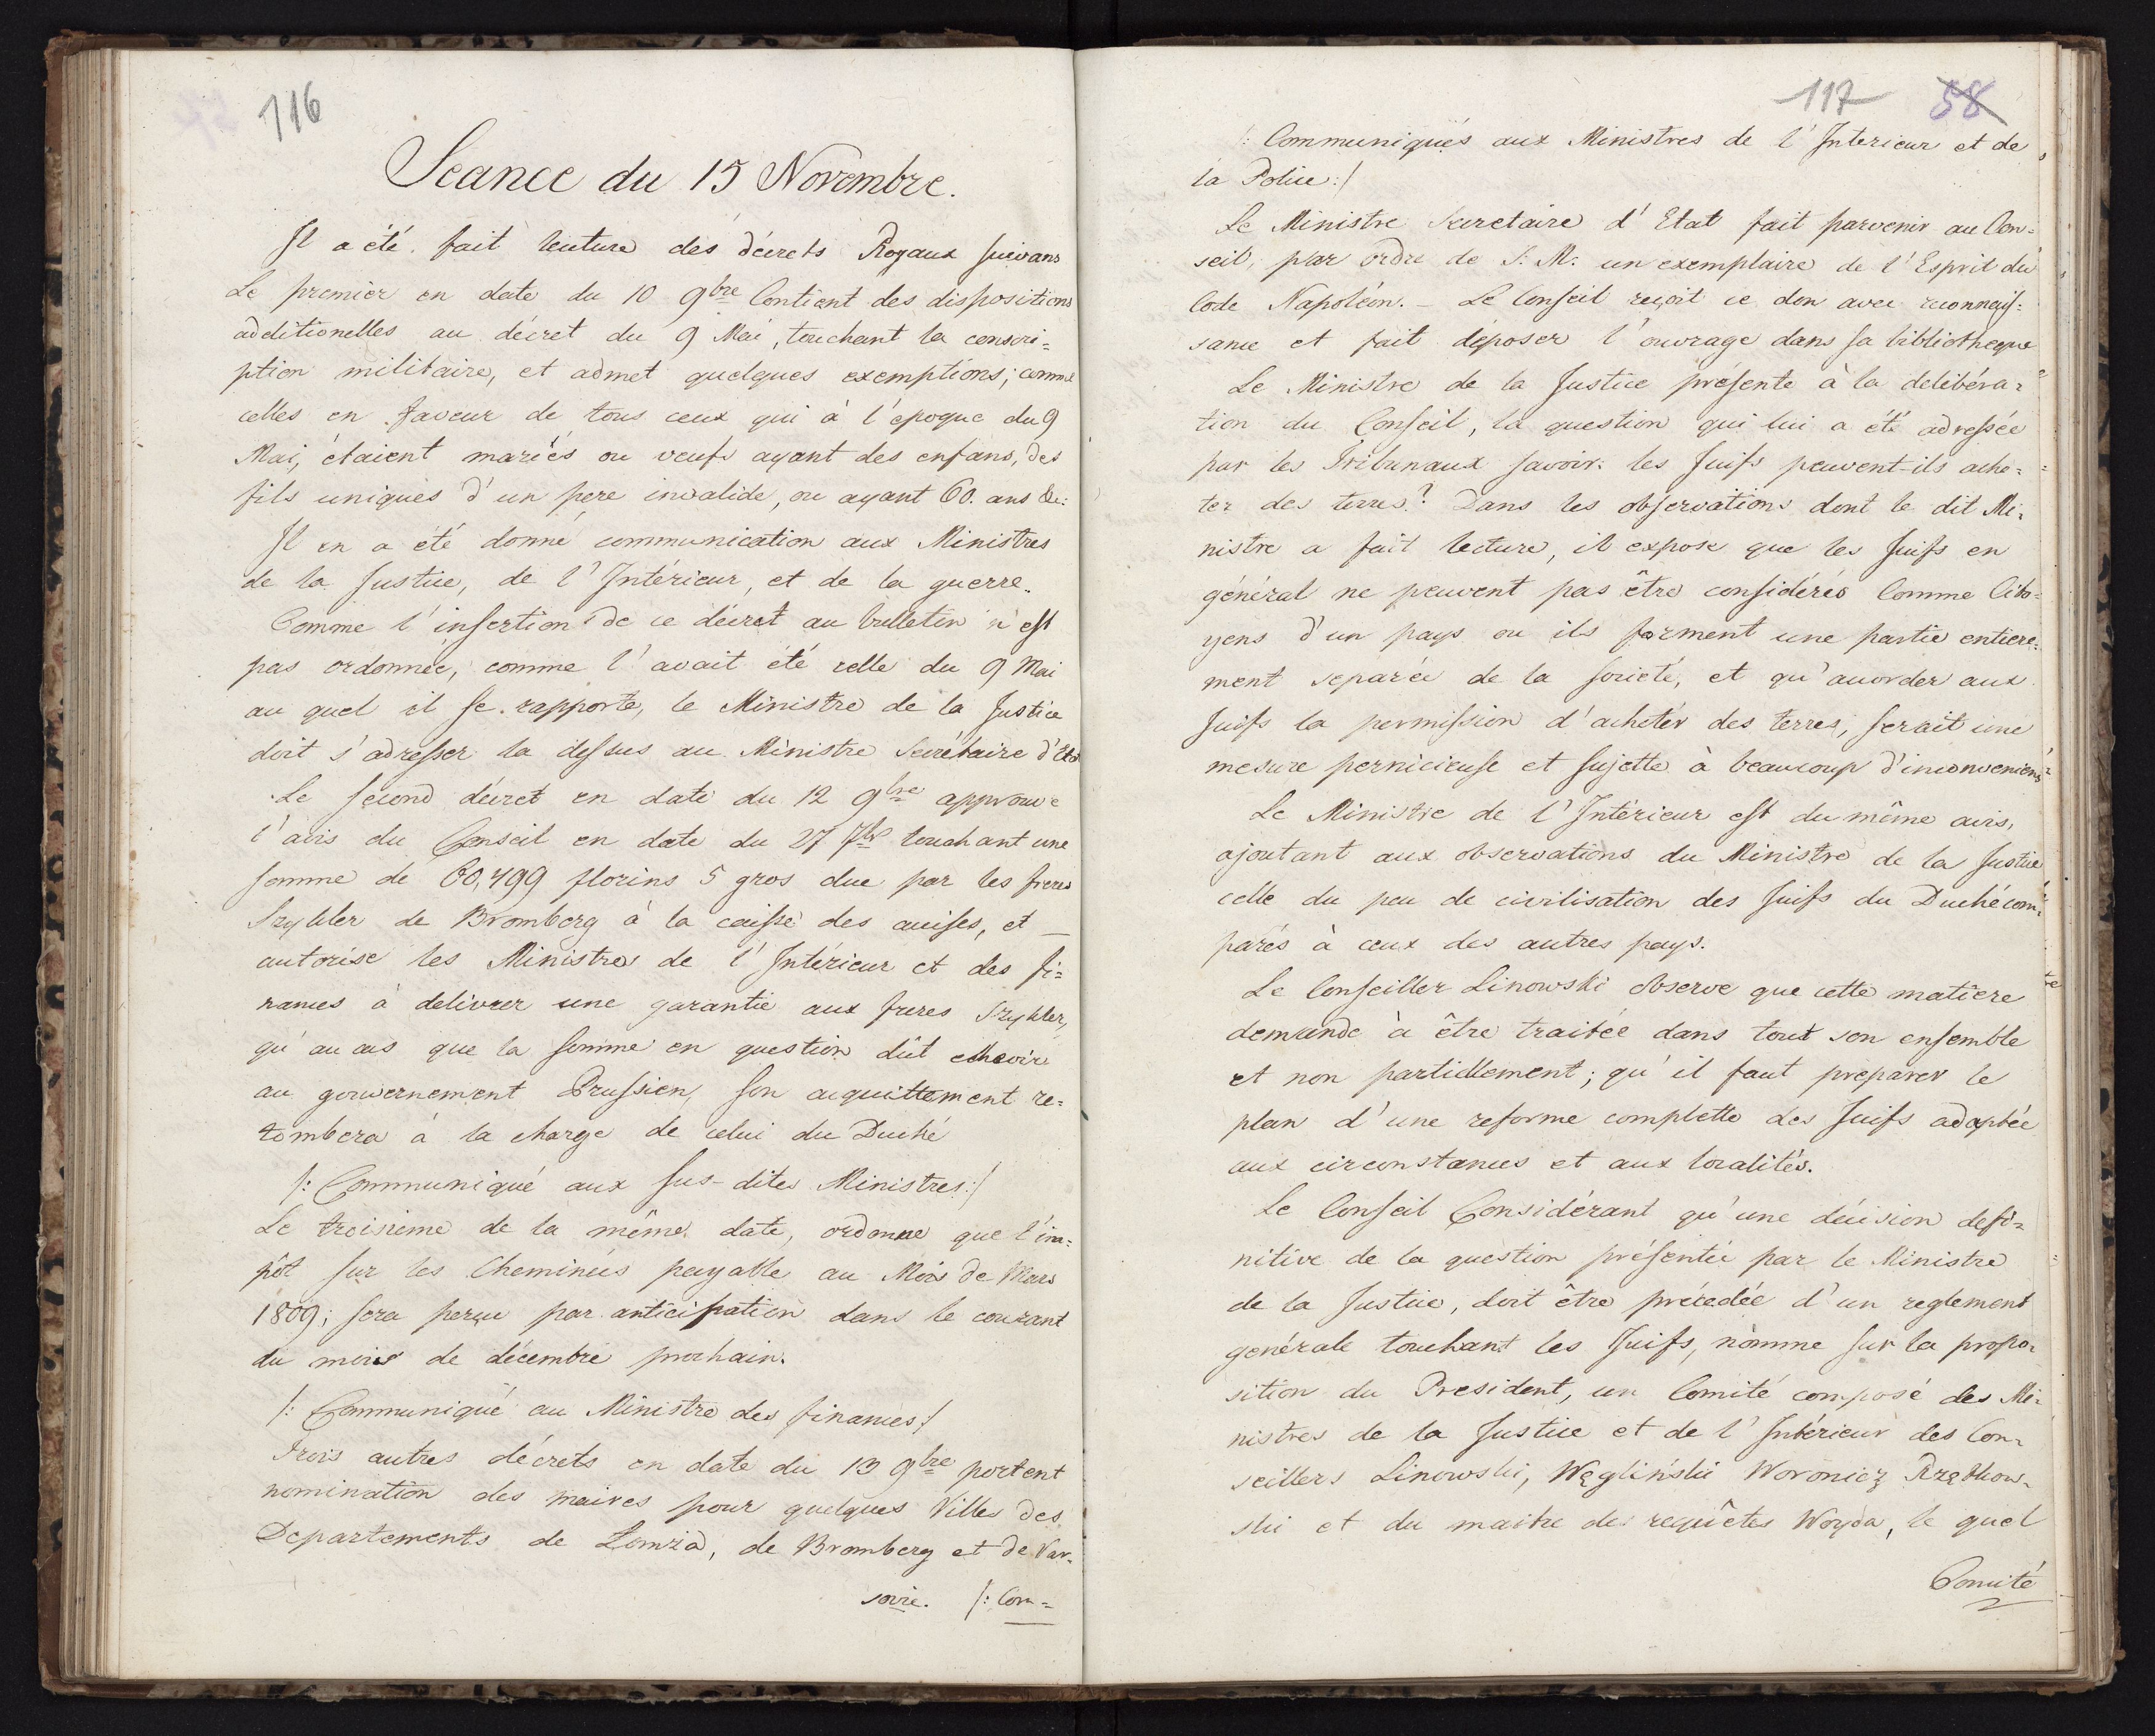 116
Seance du 15 Novembre.
Il a été fait lecture des décrets Royaux suivans
Le premier en date du 10 9bre Contient des dispositions
additionelles au décret du 9 Mai, touchant la conscri=
ption militaire, et admet quelques exemptions; comme
celles en faveur de tous ceux qui à l'epoque du 9
Mai, étaient mariés ou veufs ayant des enfans, des
fils uniques d'un pere invalide, ou ayant 60. ans &c:
Il en a été donné communication aux Ministres
de la Justice, de l'Intérieur, et de la guerre.
Comme l'insertion de ce décret au bulletin n'est
pas ordonnée, comme l'avait été celle du 9 Mai
au quel il se rapporte, le Ministre de la Justice
doit s'adresser la dessus au Ministre Secrétaire d'Etat
Le second décret en date du 12 9bre approuve
l'avis du Conseil en date du 27 7bre touchant une
somme de 60,499 florins 5 gros due par les freres
Szykler de Bromberg à la caisse des accises, et
autorise les Ministres de l'Intérieur et des fi=
nances à delivrer une garantie aux freres Szykler,
qu'au cas que la somme en question dût echeoir
au gouvernement Prussien, son acquittement re=
tombera à la charge de celui du Duché
/: Communiqué aux sus-dites Ministres:/
Le troisieme de la même date, ordonne que l'im=
pôt sur les Cheminées payable au Mois de Mars
1809; sera perçu par anticipation dans le courant
du mois de décembre prochain.
/: Communiqué au Ministre des finances:/
Trois autres décrets en date du 13 9bre portent
nomination des maires pour quelques Villes des
Departements de Lomza, de Bromberg et de Var=
sovie. /: Com=
117 58
/: Communiqués aux Ministres de l'Interieur et de
la Police:/
Le Ministre Secretaire d'Etat fait parvenir au Con=
seil, par ordre de S. M. un exemplaire de l'Esprit du
Code Napoléon. – Le Conseil reçoit ce don avec reconnais=
sance et fait déposer l'ouvrage dans sa bibliotheque
Le Ministre de la Justice presente à la delibéra=
tion du Conseil, la question qui lui a été adressée
par les Tribunaux savoir: les Juifs peuvent-ils ache=
ter des terres? Dans les observations dont le dit Mi=
nistre a fait lecture, il expose que les Juifs en
général ne peuvent pas être considérés Comme Cito=
yens d'un pays ou ils forment une partie entiere=
ment separée de la societé, et qu'accorder aux
Juifs la permission d'acheter des terres, serait une
mesure pernicieuse et sujette à beaucoup d'inconveniens
Le Ministre de l'Intérieur est du même avis,
ajoutant aux observations du Ministre de la Justice
celle du peu de civilisation des Juifs du Duché com=
parés à ceux des autres pays.
Le Conseiller Linowski observe que cette matiere
demande à être traitée dans tout son ensemble
et non partiellement; qu'il faut preparer le
plan d'une reforme complette des Juifs adaptée
aux circonstances et aux localités.
Le Conseil Considérant qu'une décision defi=
nitive de la question présentée par le Ministre
de la Justice, doit être précedée d'un reglement
generale touchant les Juifs, nomme sur la propo=
sition du President, un Comité composé des Mi=
nistres de la Justice et de l'Intérieur des Con=
seillers Linowski, Węgliński Woronicz Rządkow=
ski et du maitre des requêtes Woyda, le quel
Comité